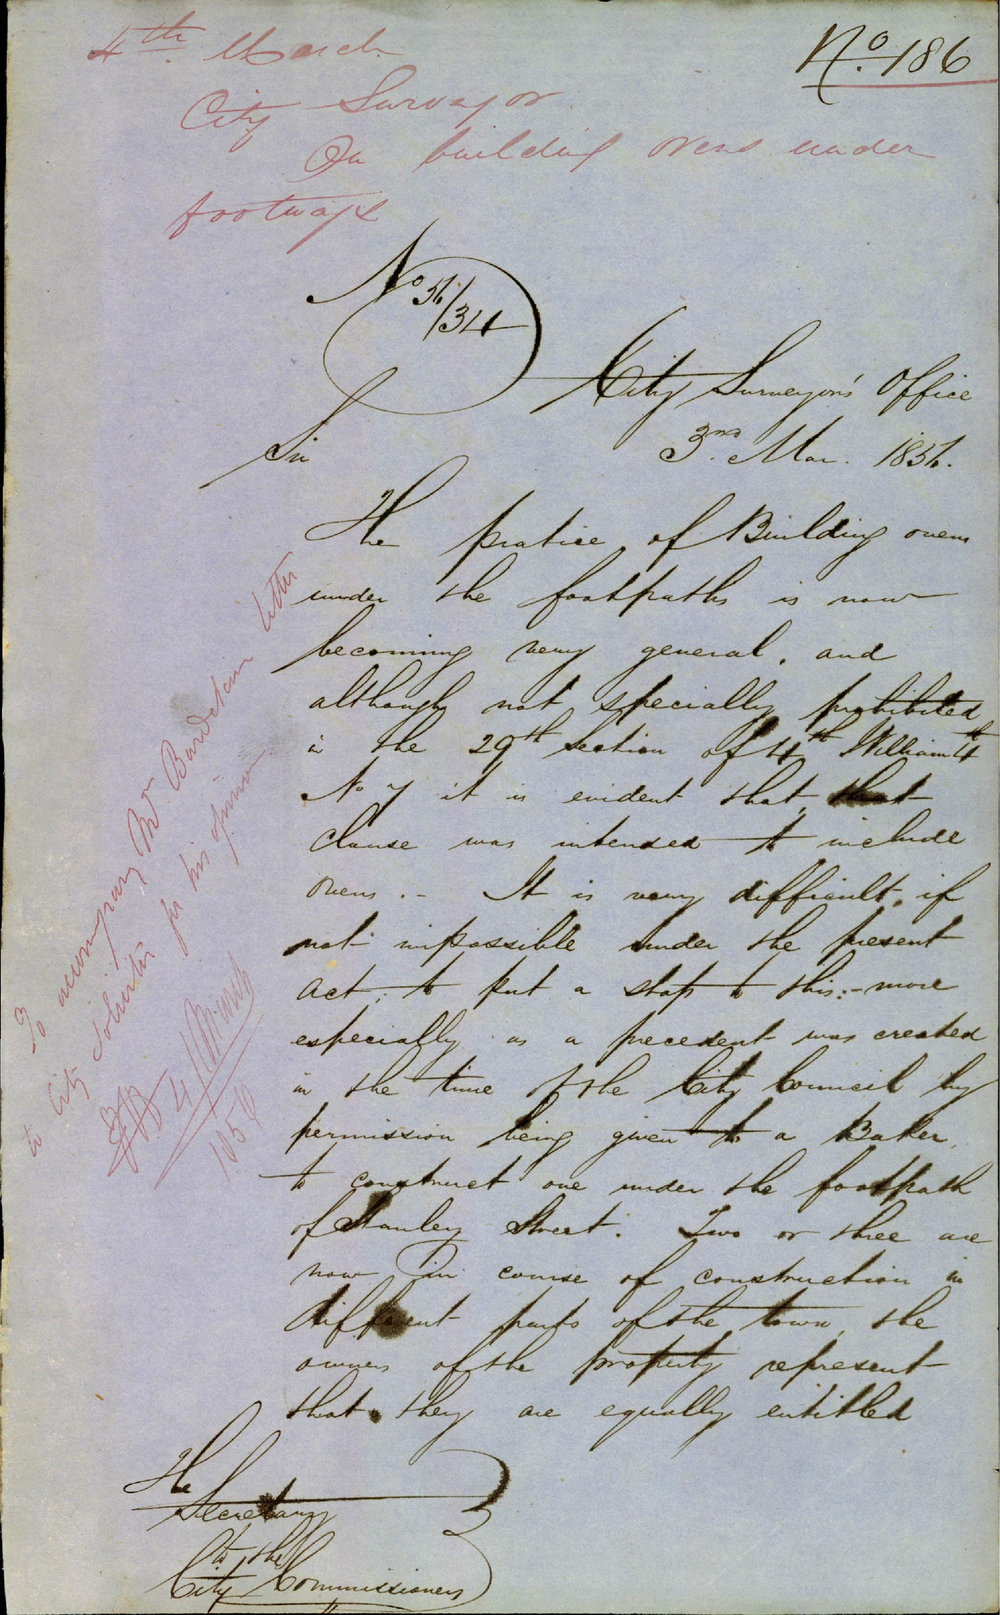 4th March
No. 186
City Surveyor
On building ovens under
footways
No 56/311
City Surveyor's Office
3rd Mar. 1856.
Sir
The pratice of Building ovens
under the footpaths is now
becoming very general, and
although not specially prohibited
in the 29th Section of 4th William 4th
No 7 it is evident that, that
clause was intended to include
ovens. - It is very difficult, if
not impossible under the present
act, to put a stop to this: - more
especially as a precedent was created
in the time of the City Council by
permission being given to a Baker,
to construct one under the footpath
of Stanley Street. Two or three are
now in course of construction in
different parts of the town, the
owners of the property represent
that they are equally entitled
The
Secretary
to the
City Commissioners
To accompany Mr letter
to City Solicitor for his opinion
4 March
1856